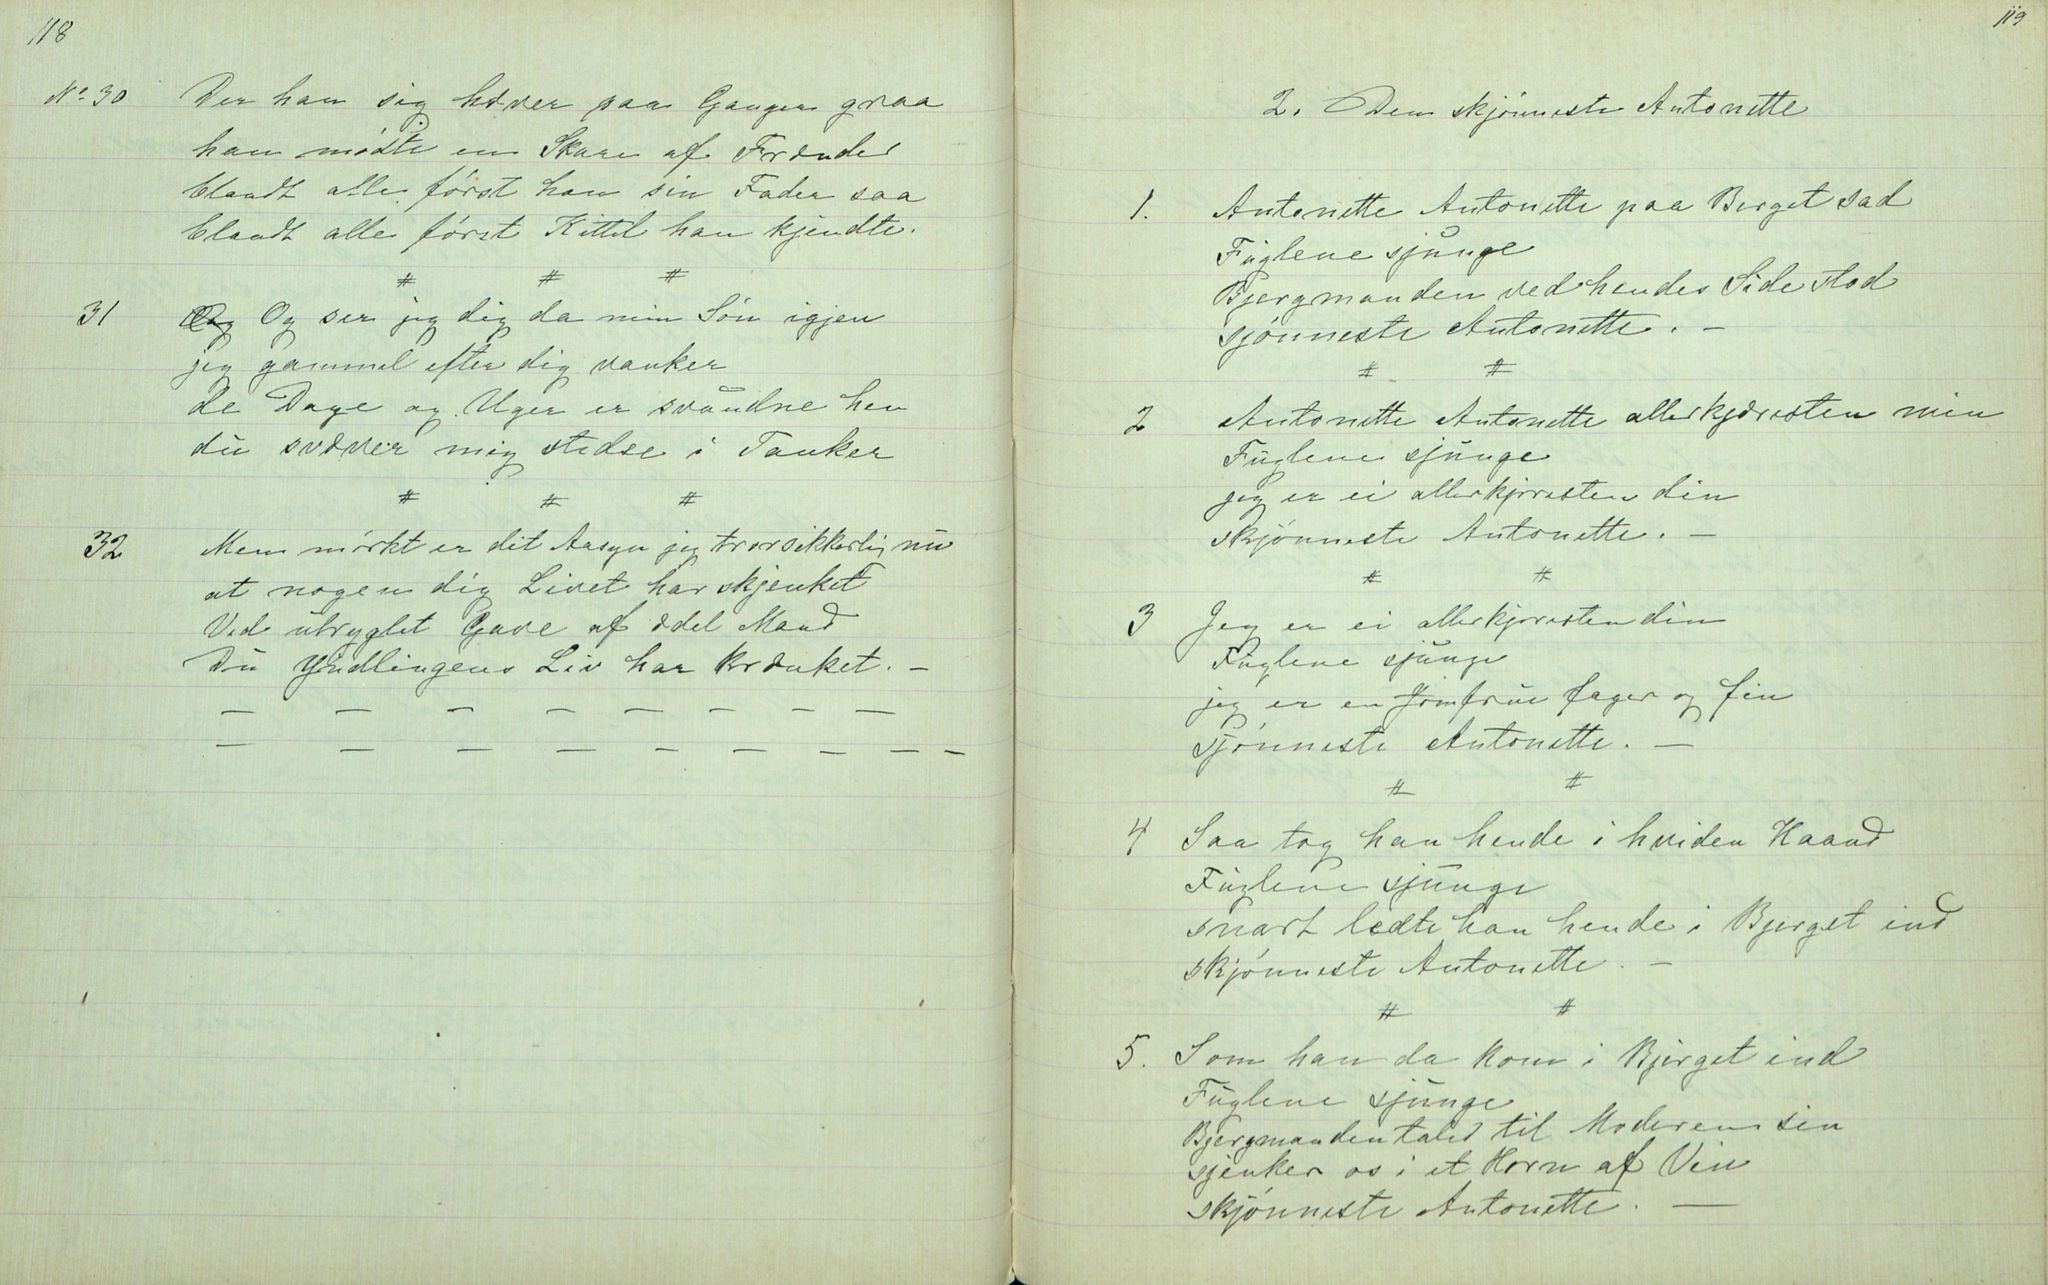 118
No 30 Der han sig hæver paa Ganger graa
han mødte en Skare af Frænder
blandt alle først han sin Fader saa
blandt alle først Kittil han kjendte.
# # #
31 Og Og ser jeg dig da min Søn igjen
jeg gammel efter dig vanker
de Dage og Uger er svundne hen
du svæver mig stedse i Tanker
# # #
32 Men mørkt er dit Aasyn jeg tror sikkerlig nu
at nogen dig Livet har skjenket
Ved utryglet Gave af ædel Mand
Du Yndlingens Liv har krænket. –
– – – – – – – –
– – – – – – – – –
119
2. Den skjønneste Antonette
1. Antonette Antonette paa Berget sad
Fuglene sjunge
Bjergmanden ved hendes Side stod
sjønneste Antonette. –
# #
2 Antonette Antonette allerkjæresten min
Fuglene sjunge
jeg er ei allerkjæresten din
skjønneste Antonette. –
# #
3 Jeg er ei allerkjæresten din
Fuglene sjunge
jeg er en Jomfrue fager og fin
sjønneste Antonette. –
# #
4 Saa tog han hende i hviden Haand
Fuglene sjunge
snart ledte han hende i Bjerget ind
skjønneste Antonette. –
# #
5. Som han da kom i Bjerget ind
Fuglene sjunge
Bjergmanden taler til Moderen sin
sjenker os i et Horn af Vin
skjønneste Antonette. –